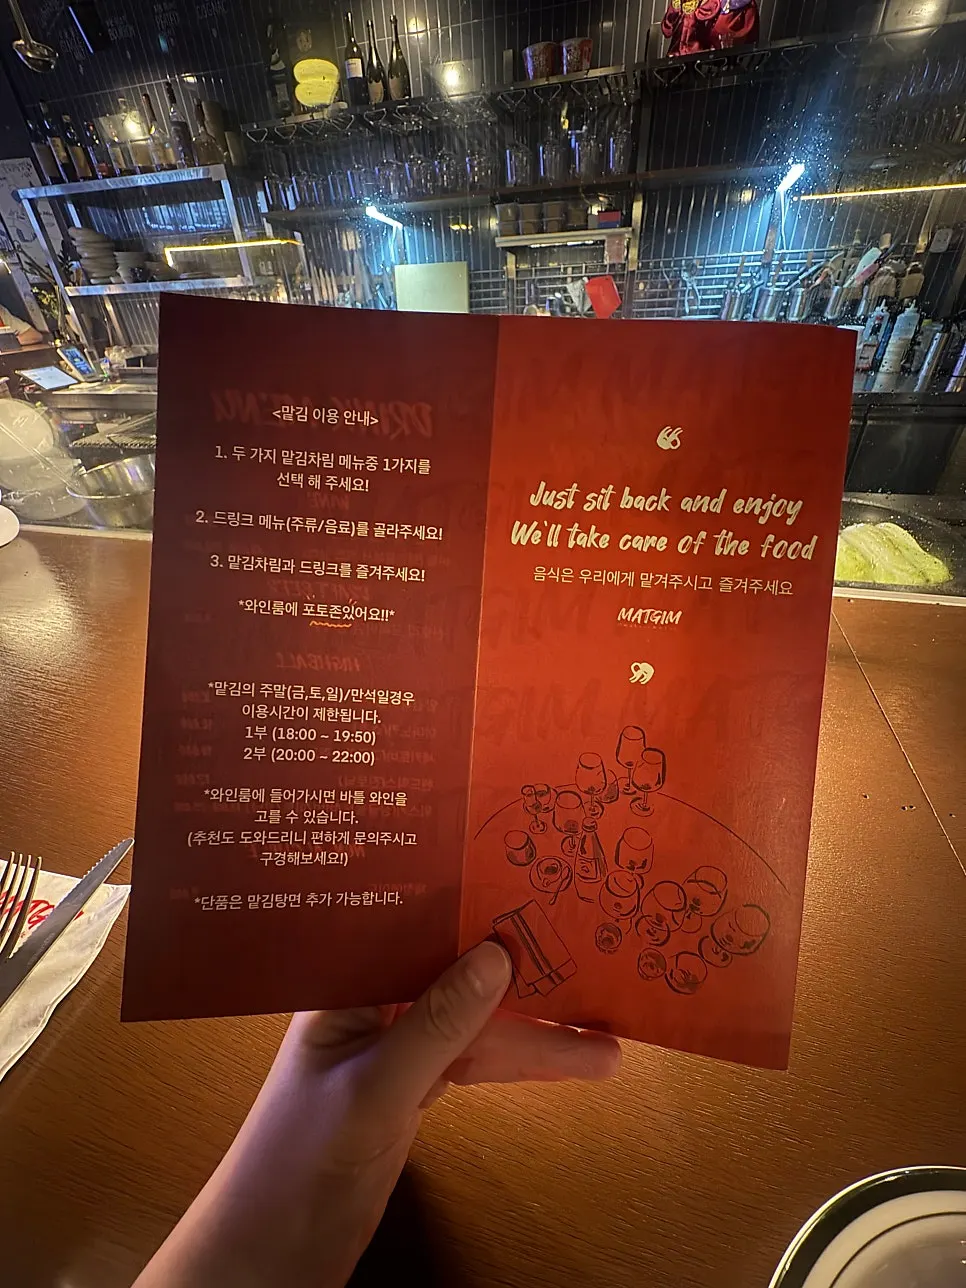 <맡김 이용 안내>
1. 두 가지 맡김차림 메뉴중 1가지를
선택 해 주세요!
2. 드링크 메뉴(주류/음료)를 골라주세요!
3. 맡김차림과 드링크를 즐겨주세요!
*와인룸에 포토존있어요!!*
*맡김의 주말(금,토,일)/만석일경우
이용시간이 제한됩니다.
1부 (18:00 ~ 19:50)
2부 (20:00 ~ 22:00)
*와인룸에 들어가시면 바틀 와인을
고를 수 있습니다.
(추천도 도와드리니 편하게 문의주시고
구경해보세요!)
*단품은 맡김탕면 추가 가능합니다.
“
Just sit back and enjoy
We'll take care of the food
음식은 우리에게 맡겨주시고 즐겨주세요
MATGIM
”